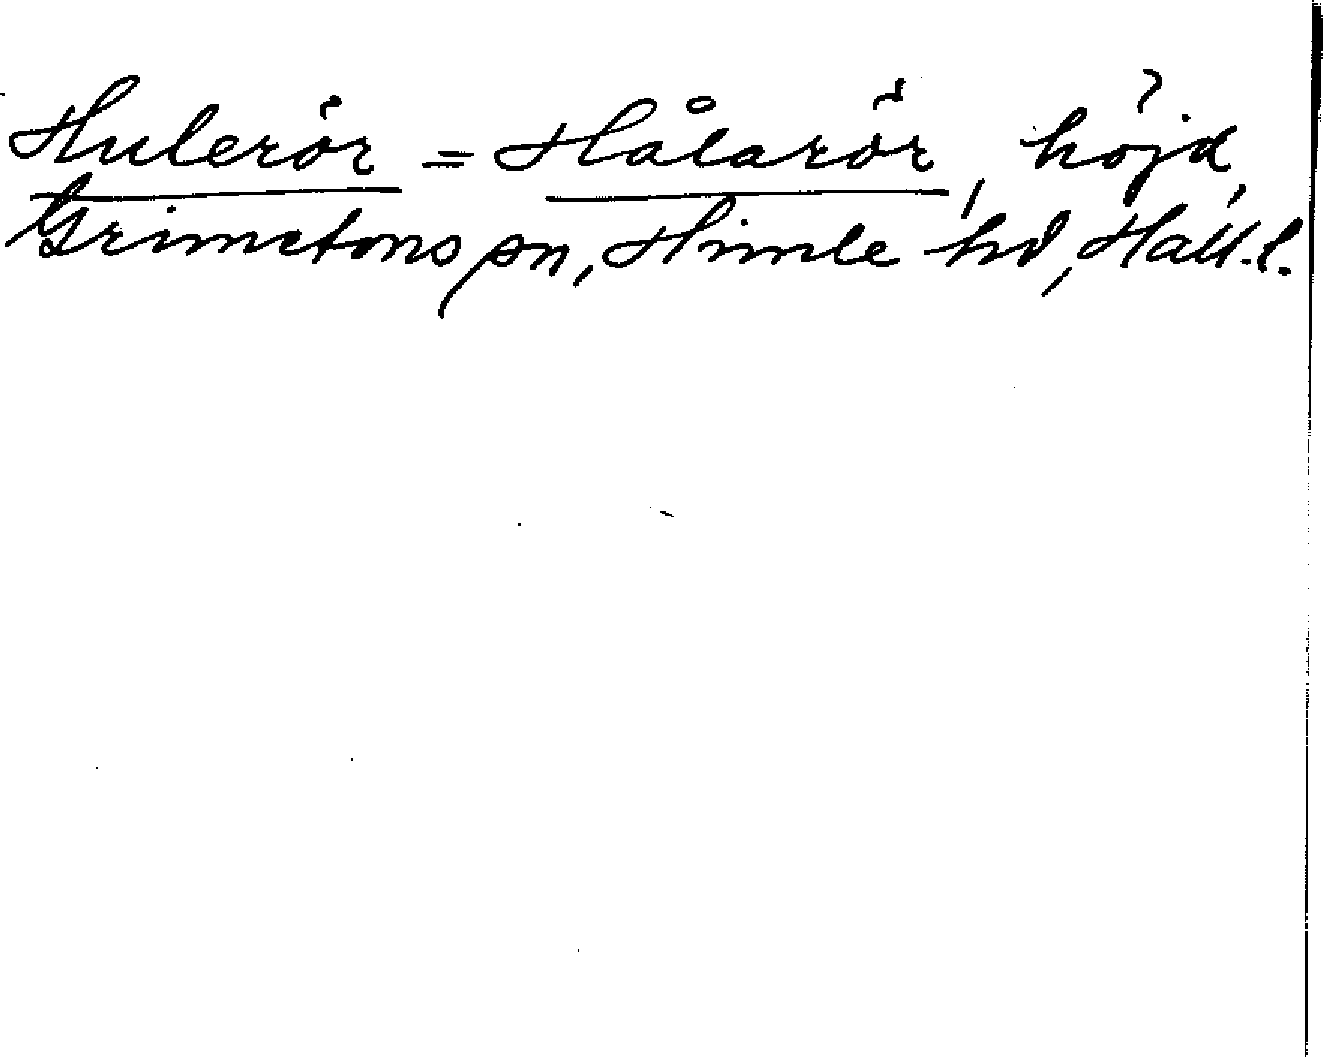 Hulerör = Hålarör, höjd,
Grimetons sn, Himle hd, Hall. l.